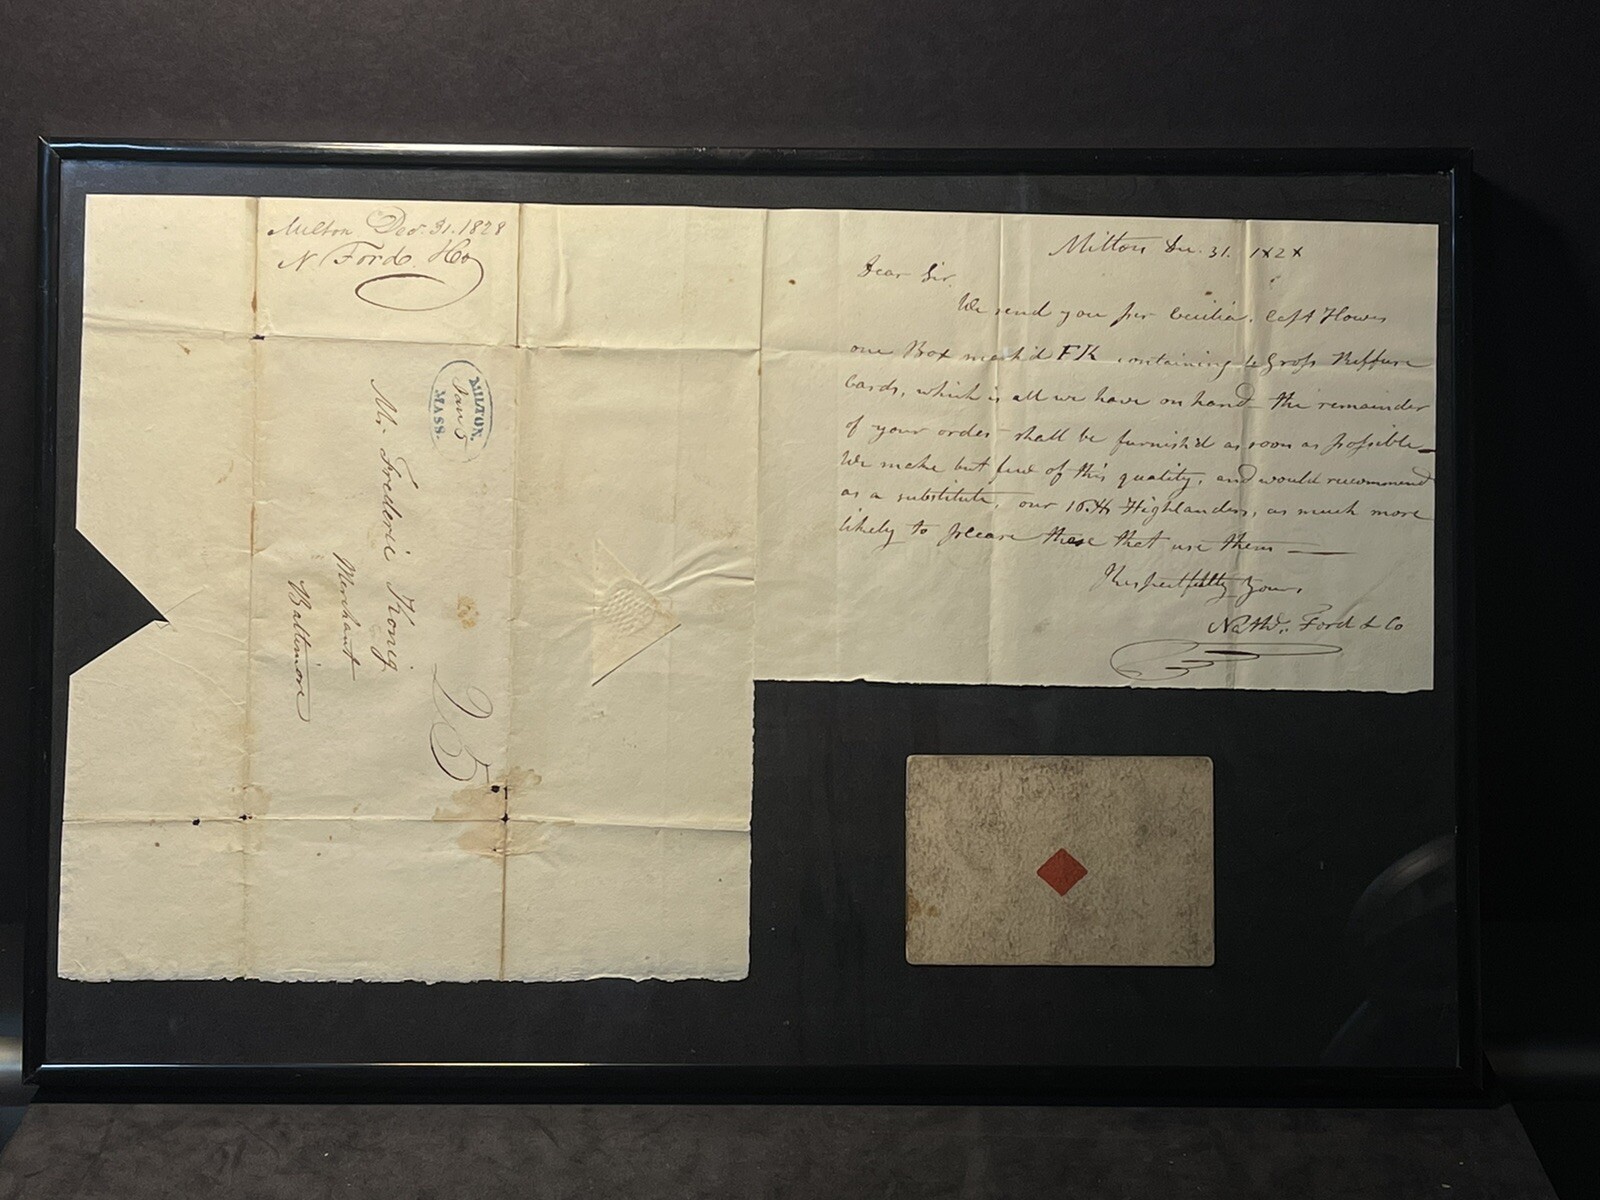 Milton Dec. 31. 1828
N Ford & Co
MILTON,
Jan 5
MASS.
Mr. Frederic Konig
Merchant
Baltimore
25
Milton Dec. 31. 1828
Dear Sir,
We send you per Cecilia, Capt Howes
one Box mark'd FK containing 4 Gross
Cards, which is all we have on hand - the remainder
of your order shall be furnish'd as soon as possible -
We make but few of this quality, and would recommend
as a substitute, our Highlanders, as much more
likely to please those that use them -
Respectfully Yours,
Nathl. Ford & Co